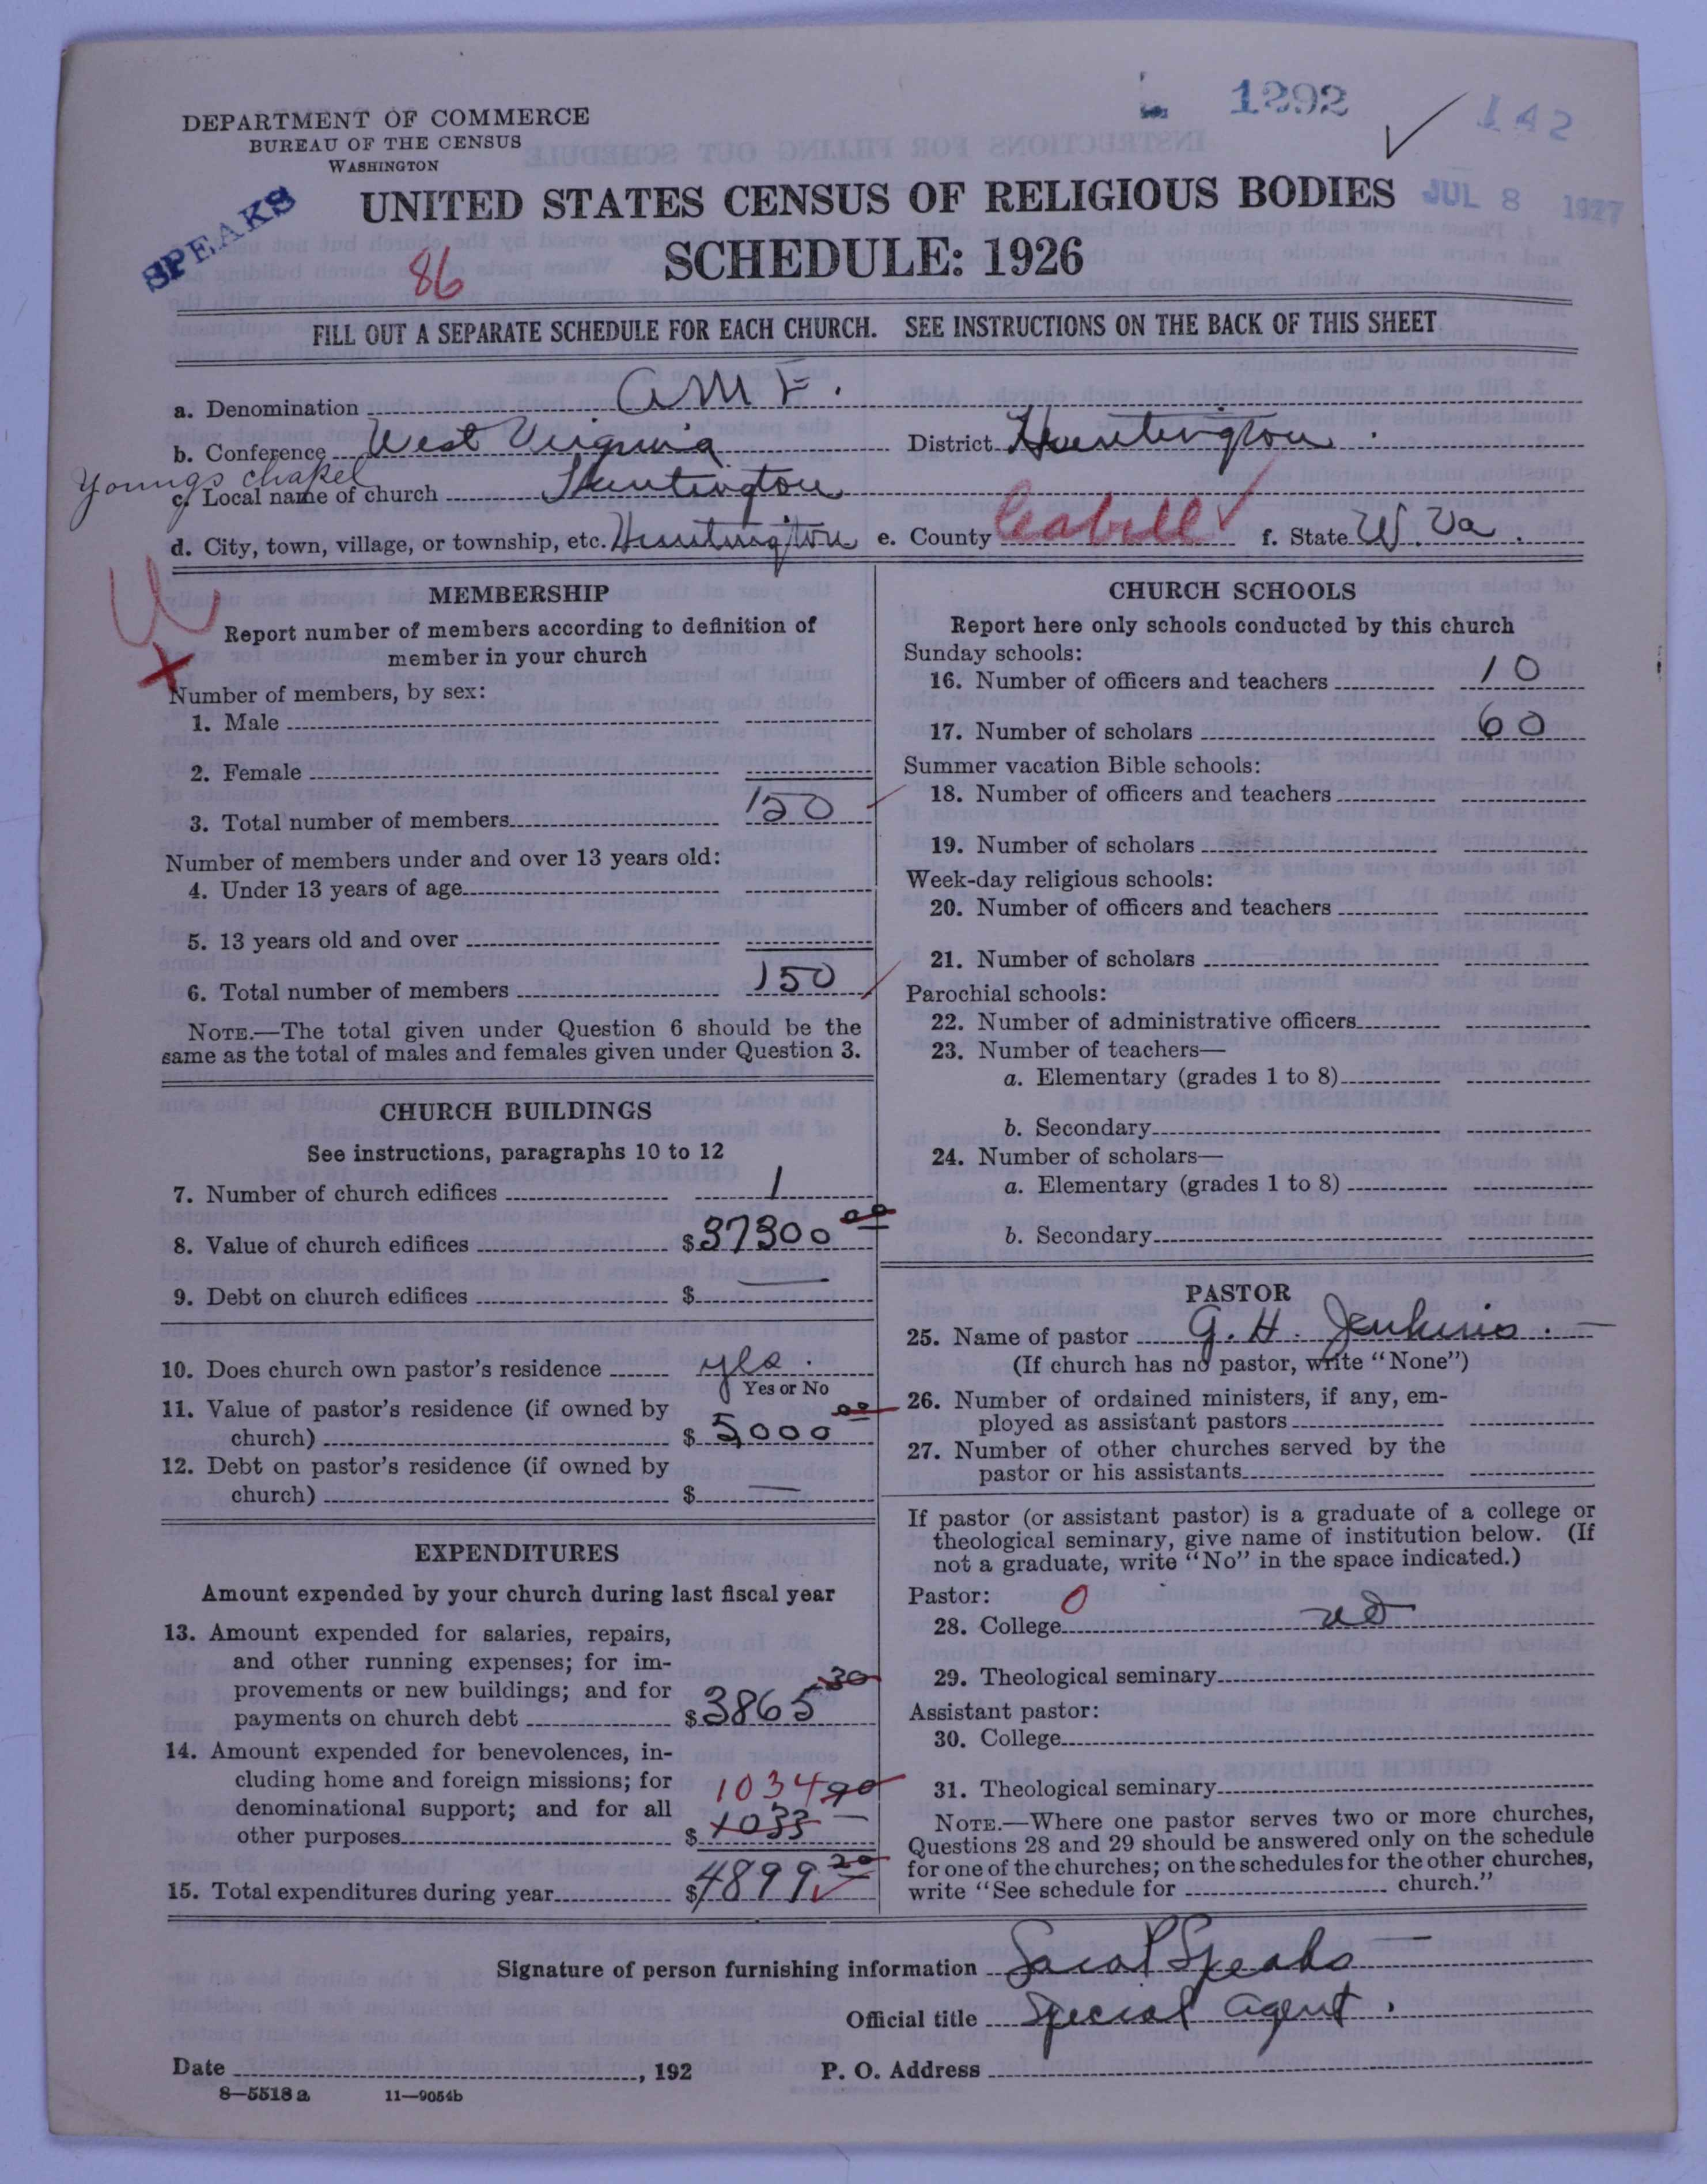 1292
142
DEPARTMENT OF COMMERCE
BUREAU OF THE CENSUS
WASHINGTON
SPEAKS
UNITED STATES CENSUS OF RELIGIOUS BODIES
JUL 8 1927
86
SCHEDULE: 1926
FILL OUT A SEPARATE SCHEDULE FOR EACH CHURCH. SEE INSTRUCTIONS ON THE BACK OF THIS SHEET
a. Denomination A M E.
b. Conference West Virginia District Huntington.
Youngs chapel
c. Local name of church Huntington
d. City, town, village, or township, etc. Huntington e. County Cabell f. State W. Va.
MEMBERSHIP
Report number of members according to definition of
member in your church
Number of members, by sex:
1. Male
2. Female
3. Total number of members 150
Number of members under and over 13 years old:
4. Under 13 years of age
5. 13 years old and over
6. Total number of members 150
NOTE.—The total given under Question 6 should be the
same as the total of males and females given under Question 3.
CHURCH BUILDINGS
See instructions, paragraphs 10 to 12
7. Number of church edifices 1
8. Value of church edifices $37300 00
9. Debt on church edifices $ —
10. Does church own pastor's residence yes.
Yes or No
11. Value of pastor's residence (if owned by
church) $ 5000 00
12. Debt on pastor's residence (if owned by
church) $ —
EXPENDITURES
Amount expended by your church during last fiscal year
13. Amount expended for salaries, repairs,
and other running expenses; for im-
provements or new buildings; and for
payments on church debt $3865 30
14. Amount expended for benevolences, in-
cluding home and foreign missions; for
denominational support; and for all
1034 90
other purposes $ 1033
15. Total expenditures during year $4899 20
CHURCH SCHOOLS
Report here only schools conducted by this church
Sunday schools:
16. Number of officers and teachers 10
17. Number of scholars 60
Summer vacation Bible schools:
18. Number of officers and teachers
19. Number of scholars
Week-day religious schools:
20. Number of officers and teachers
21. Number of scholars
Parochial schools:
22. Number of administrative officers
23. Number of teachers—
a. Elementary (grades 1 to 8)
b. Secondary
24. Number of scholars—
a. Elementary (grades 1 to 8)
b. Secondary
PASTOR
25. Name of pastor G. H. Jenkins.
(If church has no pastor, write "None")
26. Number of ordained ministers, if any, em-
ployed as assistant pastors
27. Number of other churches served by the
pastor or his assistants
If pastor (or assistant pastor) is a graduate of a college or
theological seminary, give name of institution below. (If
not a graduate, write "No" in the space indicated.)
Pastor: 0
28. College no
29. Theological seminary
Assistant pastor:
30. College
31. Theological seminary
NOTE.—Where one pastor serves two or more churches,
Questions 28 and 29 should be answered only on the schedule
for one of the churches; on the schedules for the other churches,
write "See schedule for church."
Signature of person furnishing information Sara P Speaks
Official title Special Agent.
Date , 192 P. O. Address
8—5518 a 11—9054b